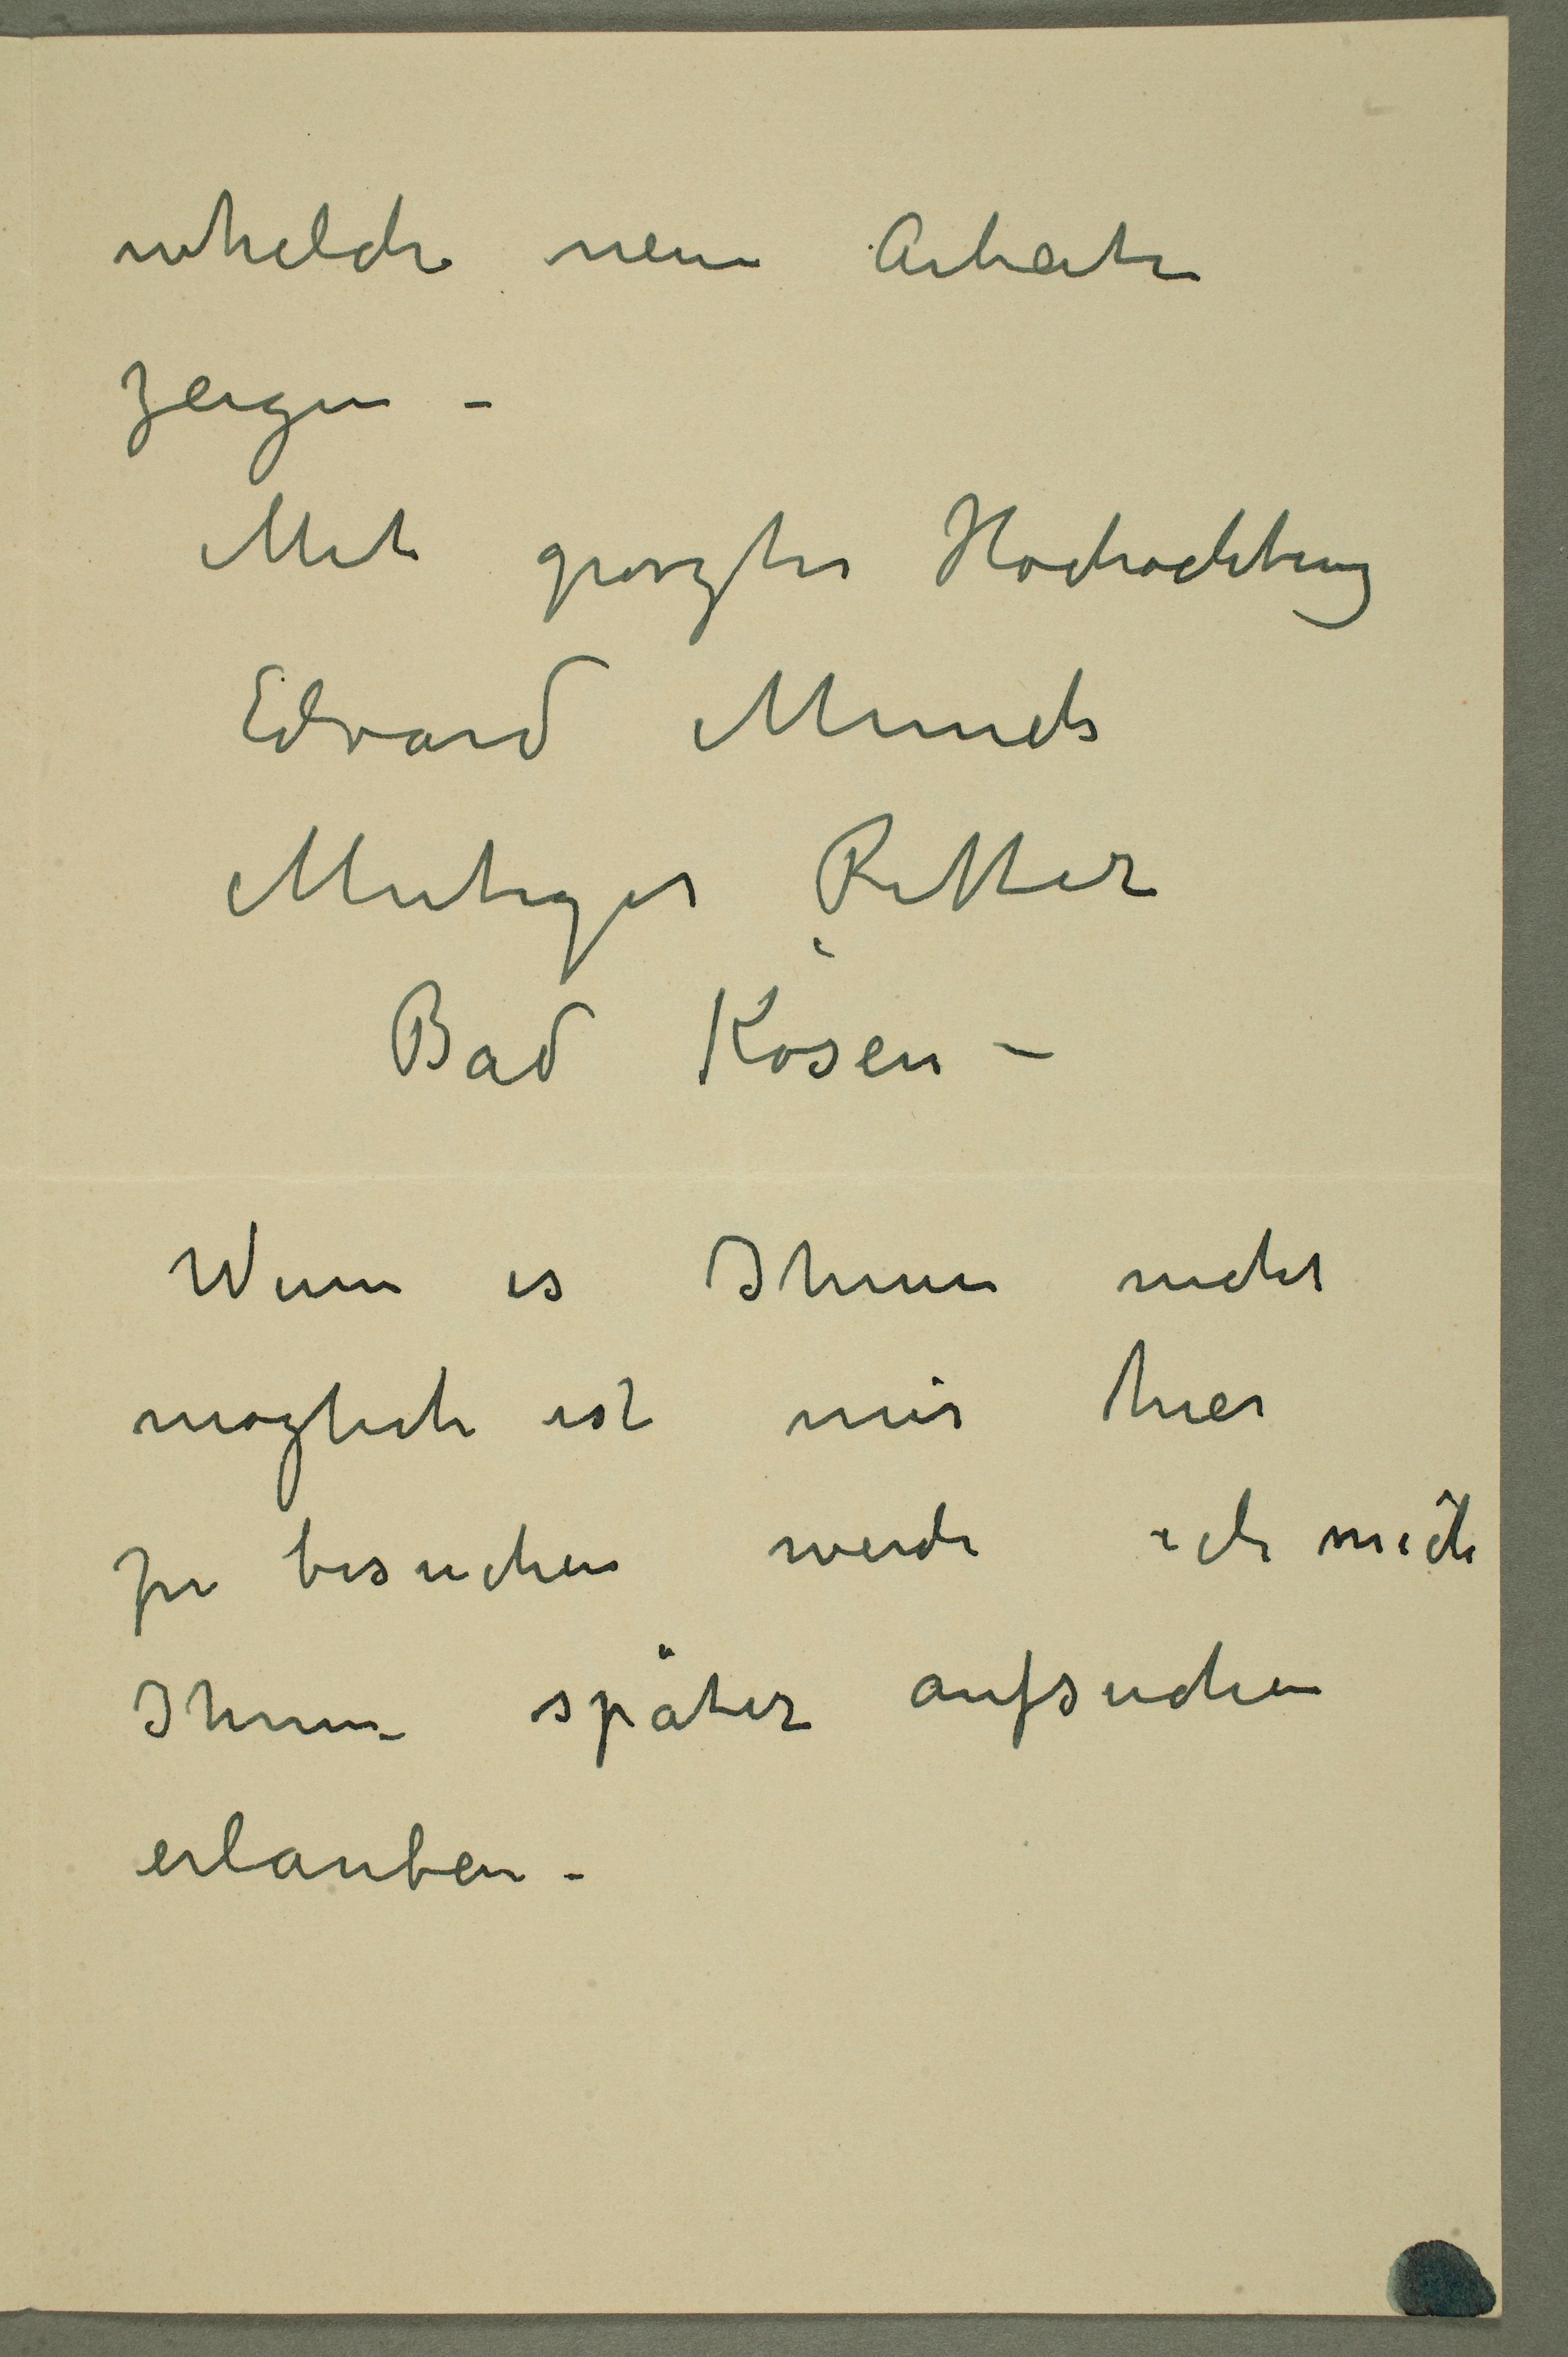 whelche neue Arbeite
zeigen –
Mit groszter Hochachtung
Edvard Munch
Mutiger Ritter
Bad Kösen –
Wenn es Ihnen nicht
moglich ist mir hier
zu besuchen werde ich mich
Ihnen später aufsuchen
erlauben –